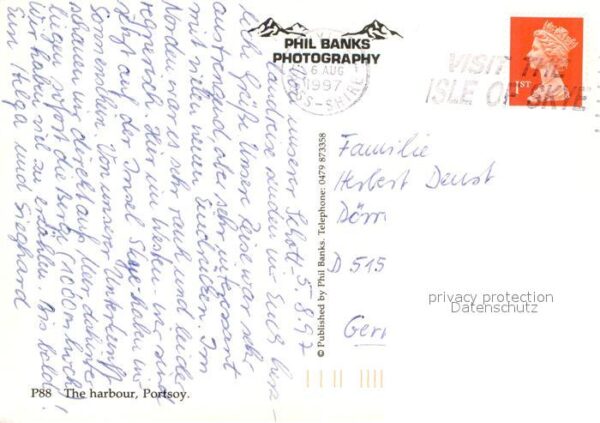 PHIL BANKS
PHOTOGRAPHY
6 AUG
1997
ROSS-SHIRE
VISIT THE
ISLE OF SKYE
1ST
5-8-97
Von unserer Schott-
landreise senden wir Euch herz-
liche Grüße. Unsere Reise war sehr
anstrengend aber sehr interessant
mit vielen neuen Eindrücken. Im
Norden war es sehr rauh und leider
regnerisch. Hier im Westen und
jetzt auf der Insel Skye haben wir
Sonnenschein. Von unserer Unterkunft
schauen wir direkt aufs Meer dahinter
liegen sofort die Berge (1000m hoch)
Wir haben viel zu erzählen. Bis bald!
Eure Helga und Sieghard
© Published by Phil Banks. Telephone: 0479 873358
Familie
Herbert Denst
Dörr
D 515
Germ
privacy protection
Datenschutz
P88 The harbour, Portsoy.